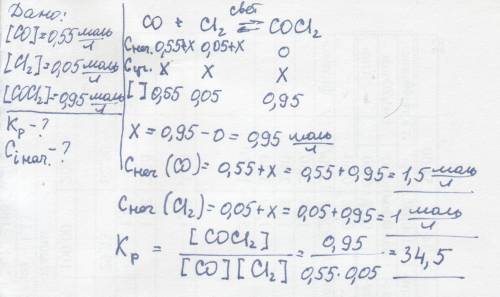 Дано:
[CO]=0,55 моль/л
[Cl₂]=0,05 моль/л
[COCl₂]=0,95 моль/л
Kр - ?
Ci нач. - ?
свет
CO + Cl₂ ⇄ COCl₂
Cнач. 0,55+X 0,05+X 0
X X X
[ ] 0,55 0,05 0,95
X = 0,95 - 0 = 0,95 моль/л
Cнач (CO) = 0,55+X = 0,55+0,95 = 1,5 моль/л
Cнач (Cl₂) = 0,05+X = 0,05+0,95 = 1 моль/л
Kр = [COCl₂] / [CO][Cl₂] = 0,95 / 0,55·0,05 = 34,5